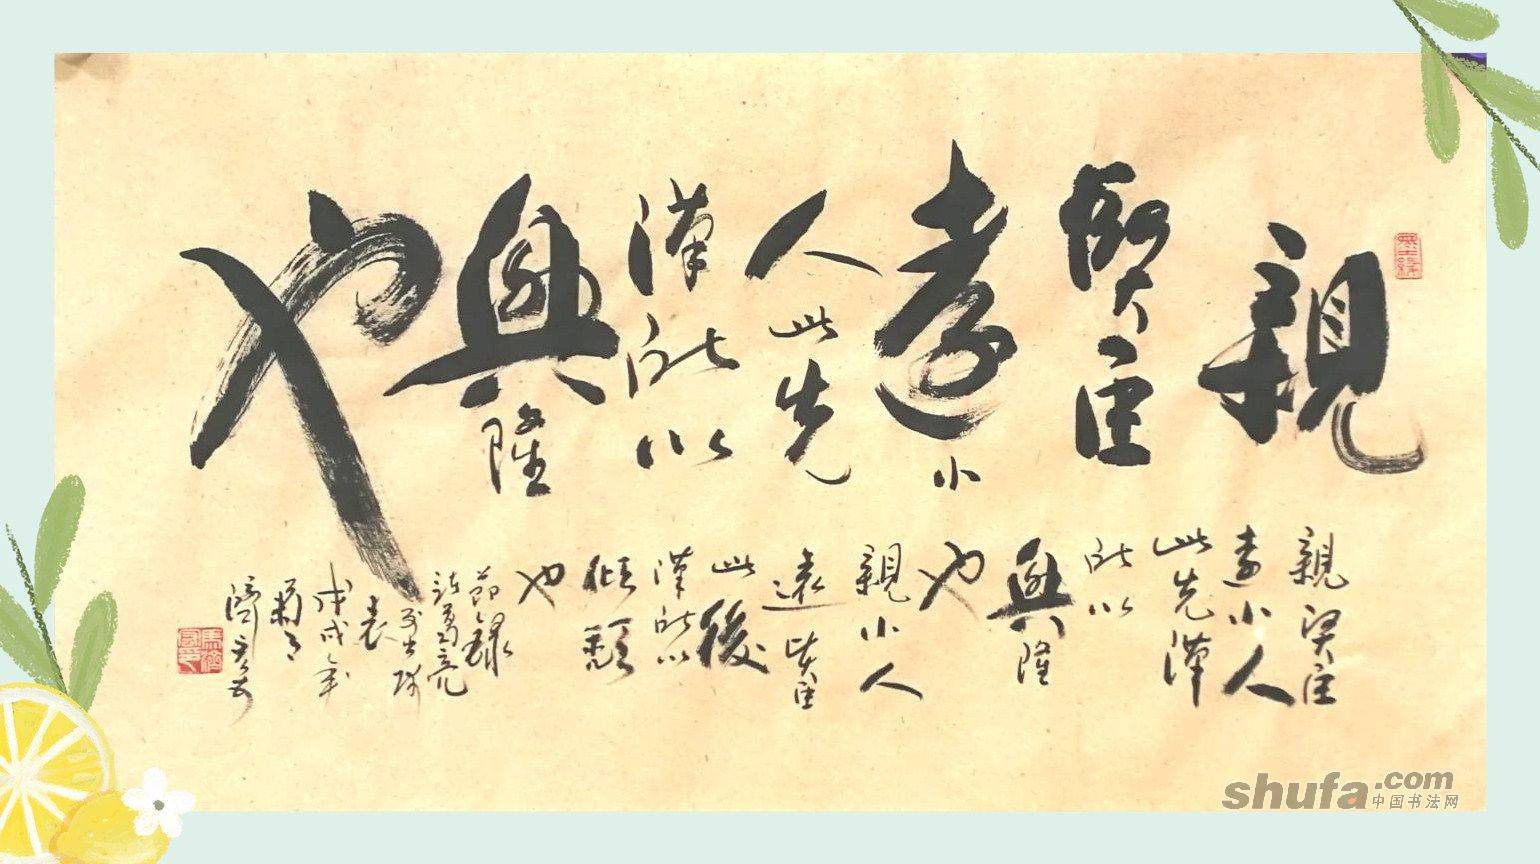 親
賢臣
遠小
人此先
漢所以
興隆
也
親賢臣
遠小人
此先漢
所以
興隆
也
親小人
遠賢臣
此後
漢所以
傾頹
也
節錄
諸葛亮
出師
表
戊戌年
菊月
墨缘
shufa.com
中国书法网